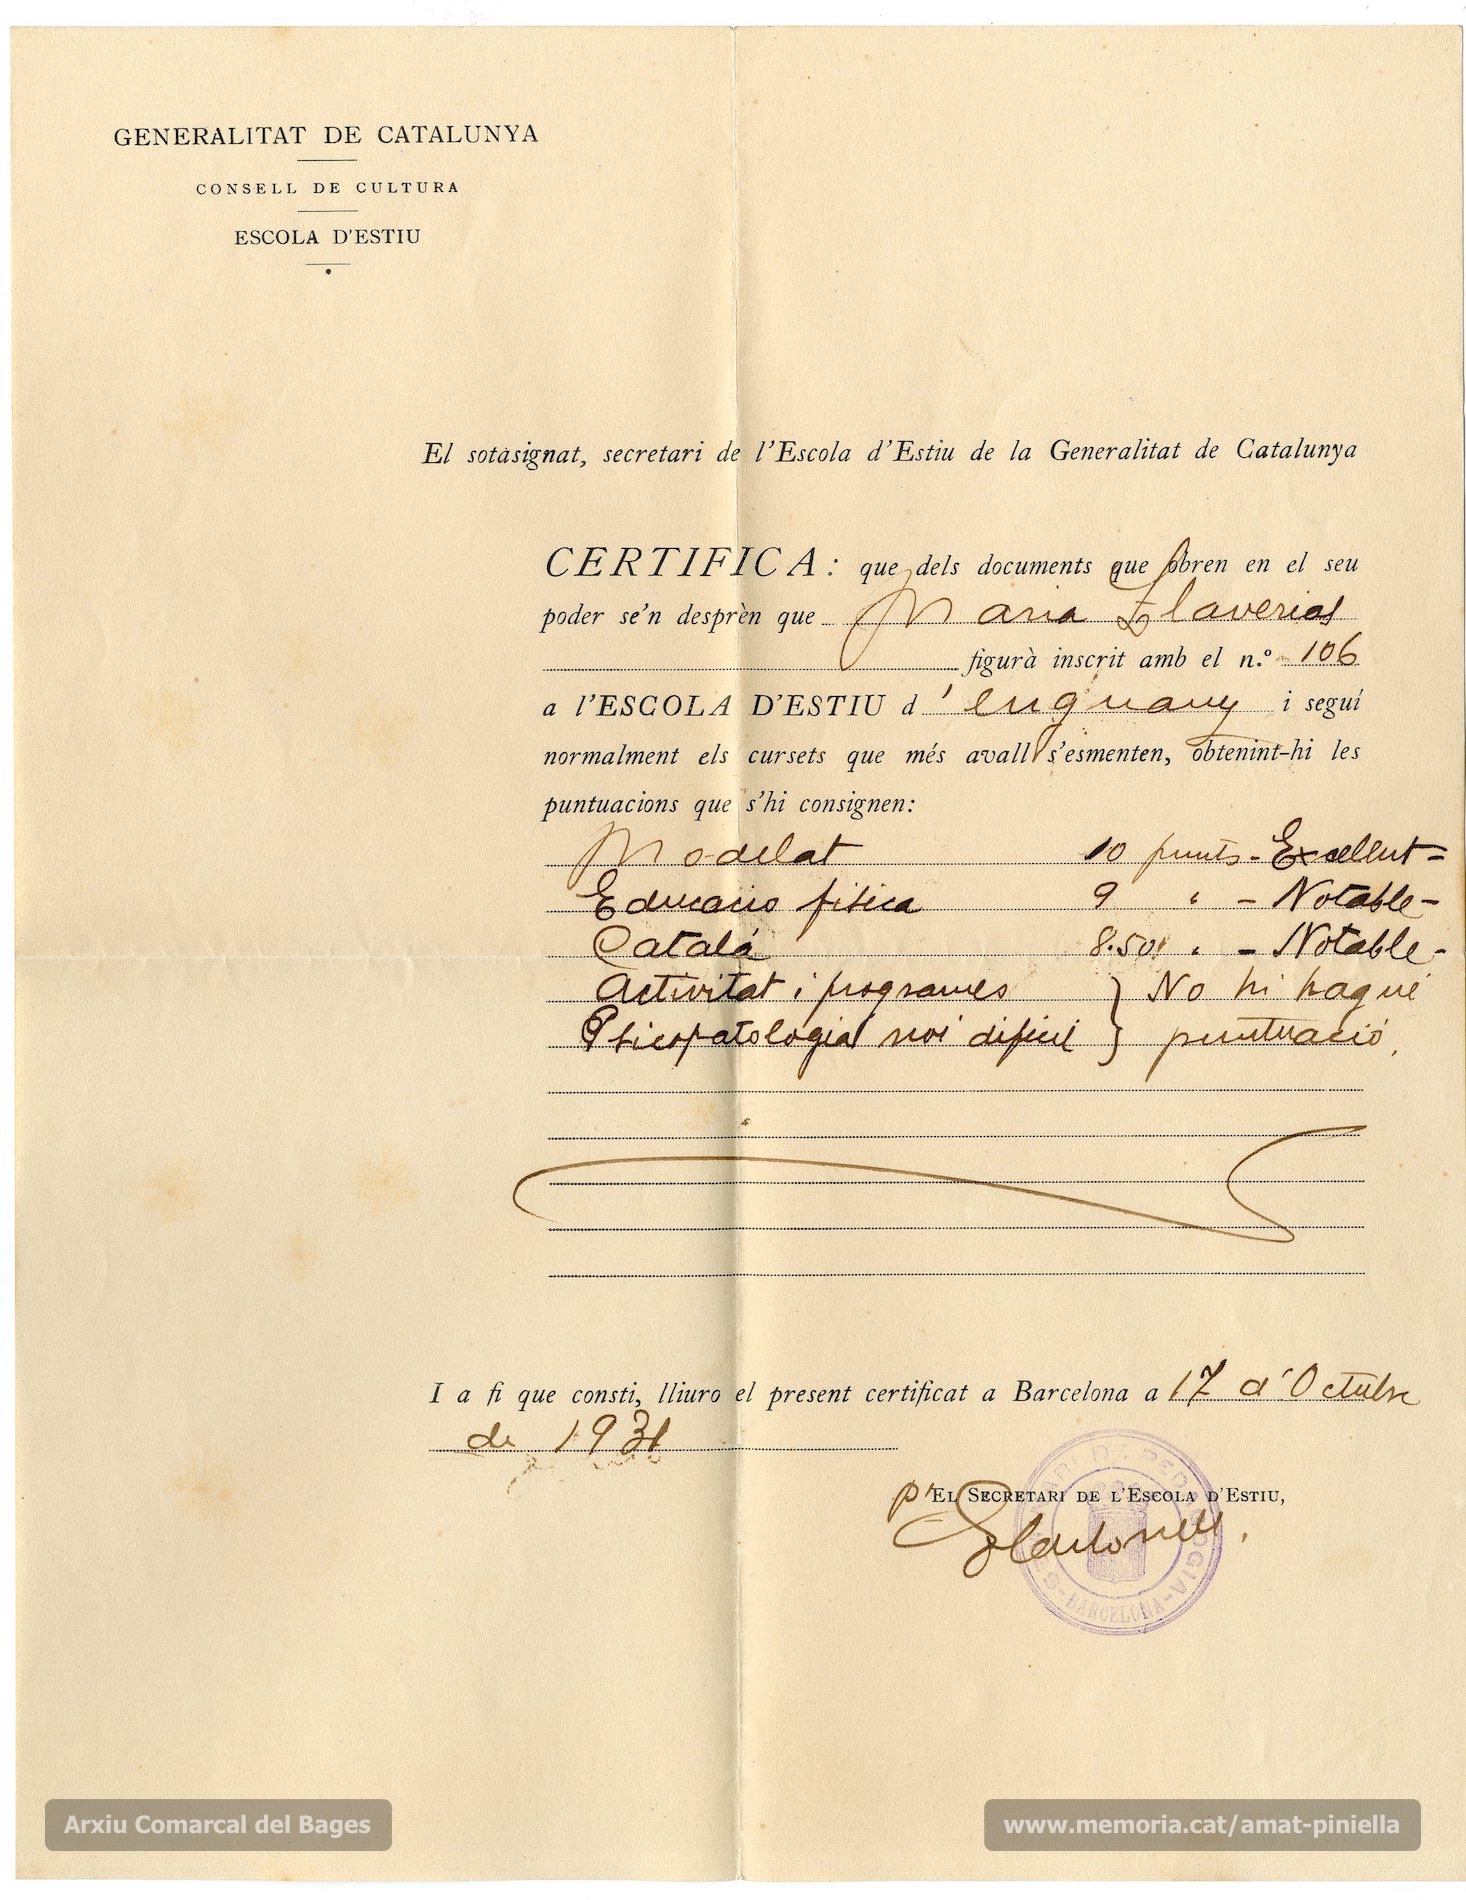 GENERALITAT DE CATALUNYA
CONSELL DE CULTURA
ESCOLA D'ESTIU
El sotàsignat, secretari de l'Escola d'Estiu de la Generalitat de Catalunya
CERTIFICA: que dels documents que obren en el seu
poder se'n desprèn que Maria Llaverias
figurà inscrit amb el n.º 106
a l'ESCOLA D'ESTIU d'enguany i seguí
normalment els cursets que més avall s'esmenten, obtenint-hi les
puntuacions que s'hi consignen:
Modelat 10 punts - Excellent =
Educacio fisica 9 " - Notable -
Català 8.50 " - Notable -
Activitat i programes } No hi hagué
Psicopatologia noi dificil } puntuació.
I a fi que consti, lliuro el present certificat a Barcelona a 17 d'Octubre
de 1931
p' EL SECRETARI DE L'ESCOLA D'ESTIU,
SEMINARI DE PEDAGOGIA - BARCELONA -
Arxiu Comarcal del Bages
www.memoria.cat/amat-piniella